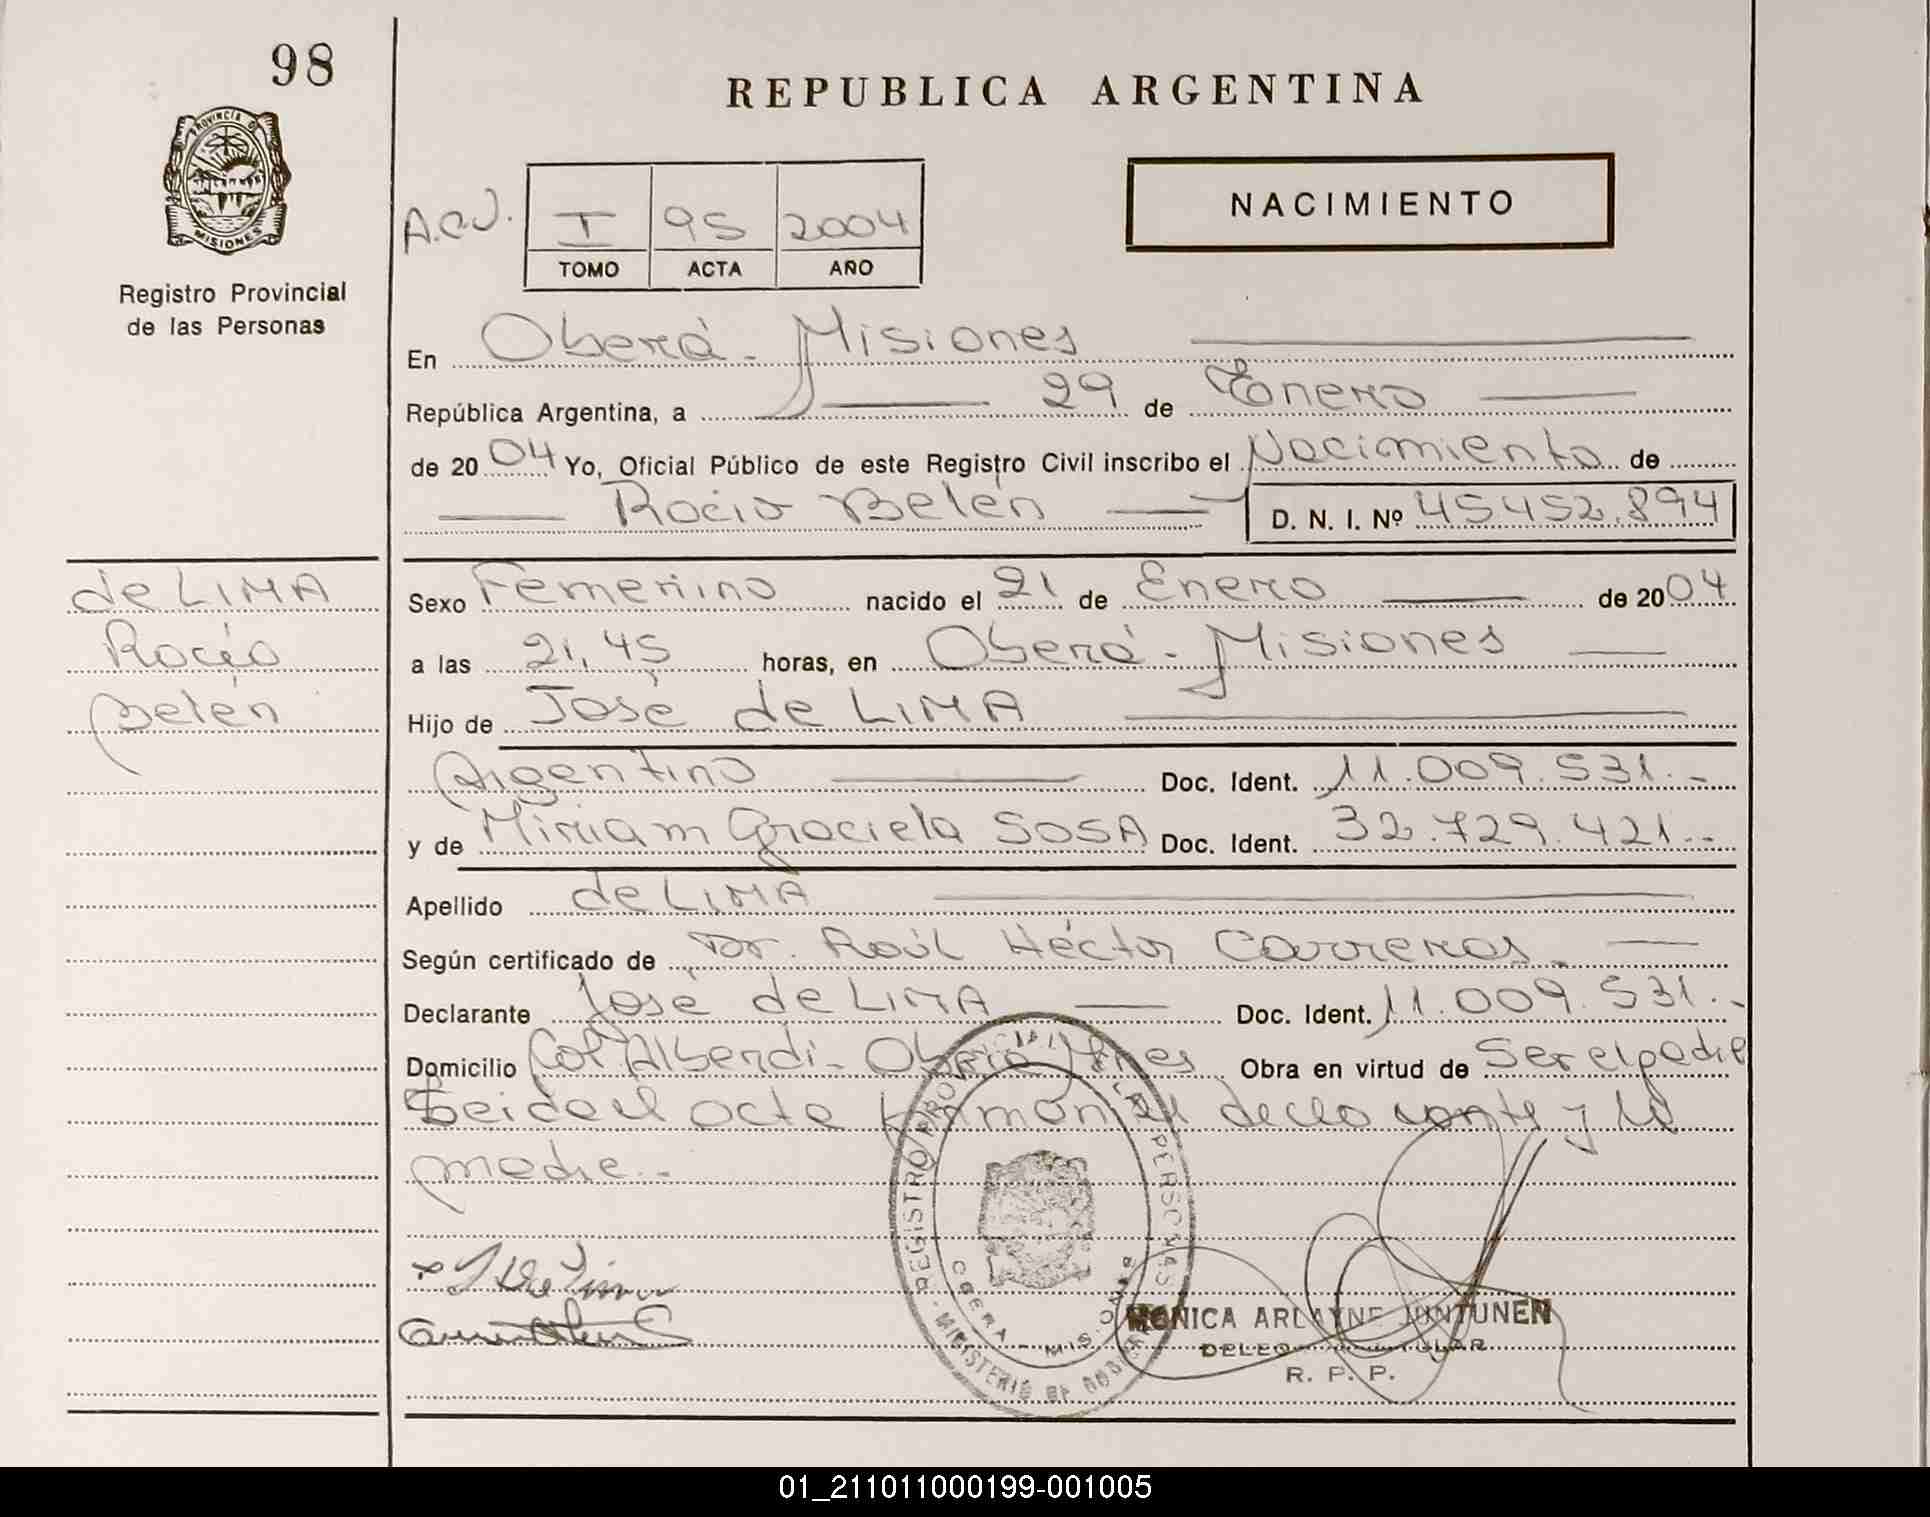 98
REPUBLICA ARGENTINA
PROVINCIA D
MISIONES
Registro Provincial
de las Personas
A.C.J.
I 95 2004
TOMO ACTA AÑO
NACIMIENTO
En Oberá - Misiones
República Argentina, a 29 de Enero
de 2004 Yo, Oficial Público de este Registro Civil inscribo el Nacimiento de
Rocio Belén D. N. I. Nº 45452.894
de LIMA
Rocío
Belén
Sexo Femenino nacido el 21 de Enero de 2004
a las 21,45 horas, en Oberá - Misiones
Hijo de José de LIMA
Argentino Doc. Ident. 11.009.531.-
y de Miriam Graciela SOSA Doc. Ident. 32.729.421.-
Apellido de LIMA
Según certificado de Dr. Raúl Héctor Carreras.
Declarante José de LIMA Doc. Ident. 11.009.531.-
Domicilio Col Alberdi - Oberá Mnes Obra en virtud de Ser el padre
Leida el acta firman el y la
madre.-
REGISTRO PROVINCIAL DE LAS PERSONAS
MINISTERIO DE GOBIERNO
OBERA - MIS.
MONICA ARLAYNE JUNTUNEN
R. P. P.
01_211011000199-001005